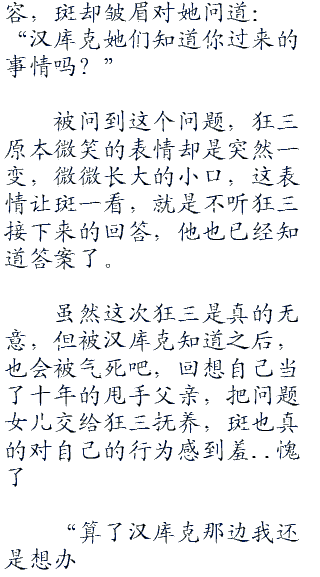 容，斑却皱眉对她问道：
“汉库克她们知道你过来的
事情吗？”
被问到这个问题，狂三
原本微笑的表情却是突然一
变，微微长大的小口，这表
情让斑一看，就是不听狂三
接下来的回答，他也已经知
道答案了。
虽然这次狂三是真的无
意，但被汉库克知道之后，
也会被气死吧，回想自己当
了十年的甩手父亲，把问题
女儿交给狂三抚养，斑也真
的对自己的行为感到羞..愧
了
“算了汉库克那边我还
是想办